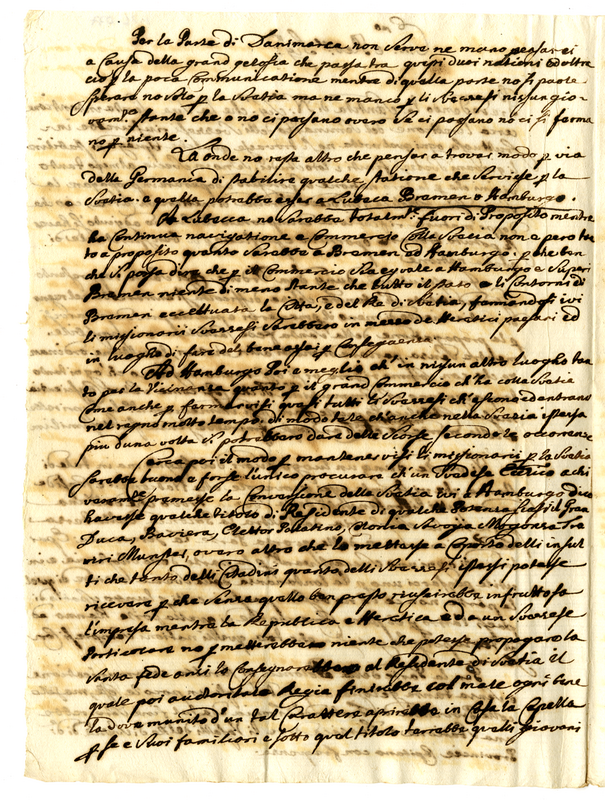 Per la Parte di Danimarca non serve ne mano pensarci
a Causa della grand gelosia che passa tra questi duoi nationi ed oltre
ciò p la poca Communicatione mentre di quella parte no si puole
sperare no solo p la Svetia ma ne manco p li Svezzesi nissun gio-
vam.to stante che o no ci passano overo se ci passano no ci si ferma
no p niente.
La onde no resta altro che pensar a trovar modo p via
della Germania di stabilire qualche statione che servisse p la
Svetia. e quella potrebbe esser a Lubeca Bremen o Hamburgo.
A Lubecca no sarebbe totalm.te fuori di Proposito mentre
ha Continua navigatione e Commercio colla Svecia non e pero tan
to a proposito quanto sarebbe a Bremen ed Hamburgo. p che ben
che si possa dire che p il Commercio sia eguale a Hamburgo e superi
Bremen niente di meno stante che tutto il stato e li Contorni di
Bremen eccettuata la Citta, e del Re di Svetia, fermandosi ivi
li missionarij Svezzesi sarebbero in mezzo de Heretici paesani ed
in luogho di fare del bene assai p Conseguenza
Ad Hamburgo poi e meglio ch' in nissun altro luogho tan
to per la Vicinanza quanto p il grand Commercio ch' ha colla Svetia
Come anche p fermarvisi quasi tutti li Svezzesi ch' escono ed entrano
nel regno molto tempo, di modo tale ch' anche nella Svezia istessa
piu d'una volta si potrebbero dare delle scorse secondo le occorrenze
Circa poi il modo p mantener visi li missionarij p la Svetia
sarebbe buono e forse l'unico procurare ch' un Svedese a chi
premesse la Conversione della Svetia ivi a Hamburgo
havesse qualche titolo di Residente di qualche Potenza sia il Gran
Duca, Baviera, Elettor Palatino, Colonia Mogonza Tre
viri Munster, overo altro che lo mettesse a Coperto delli insul
ti che tanto delli Citadini quanto delli Svezzesi istessi potesse
ricevere p che senza quello ben presto riuscirebbe infruttosa
l'impresa mentre la Republica e Heretica ed a un Svezzese
Particolare no p metterebbero niente che potesse propagare la
Santa fede anzi lo Consegnarebbero al Residente di Svetia il
quale poi auctoritate Regia finirebbe col male ogni bene
la dove munito d'un tal Carattere aprirebbe in Casa la Capella
p se e suoi familiari e sotto qual titolo terrebbe quelli giovani